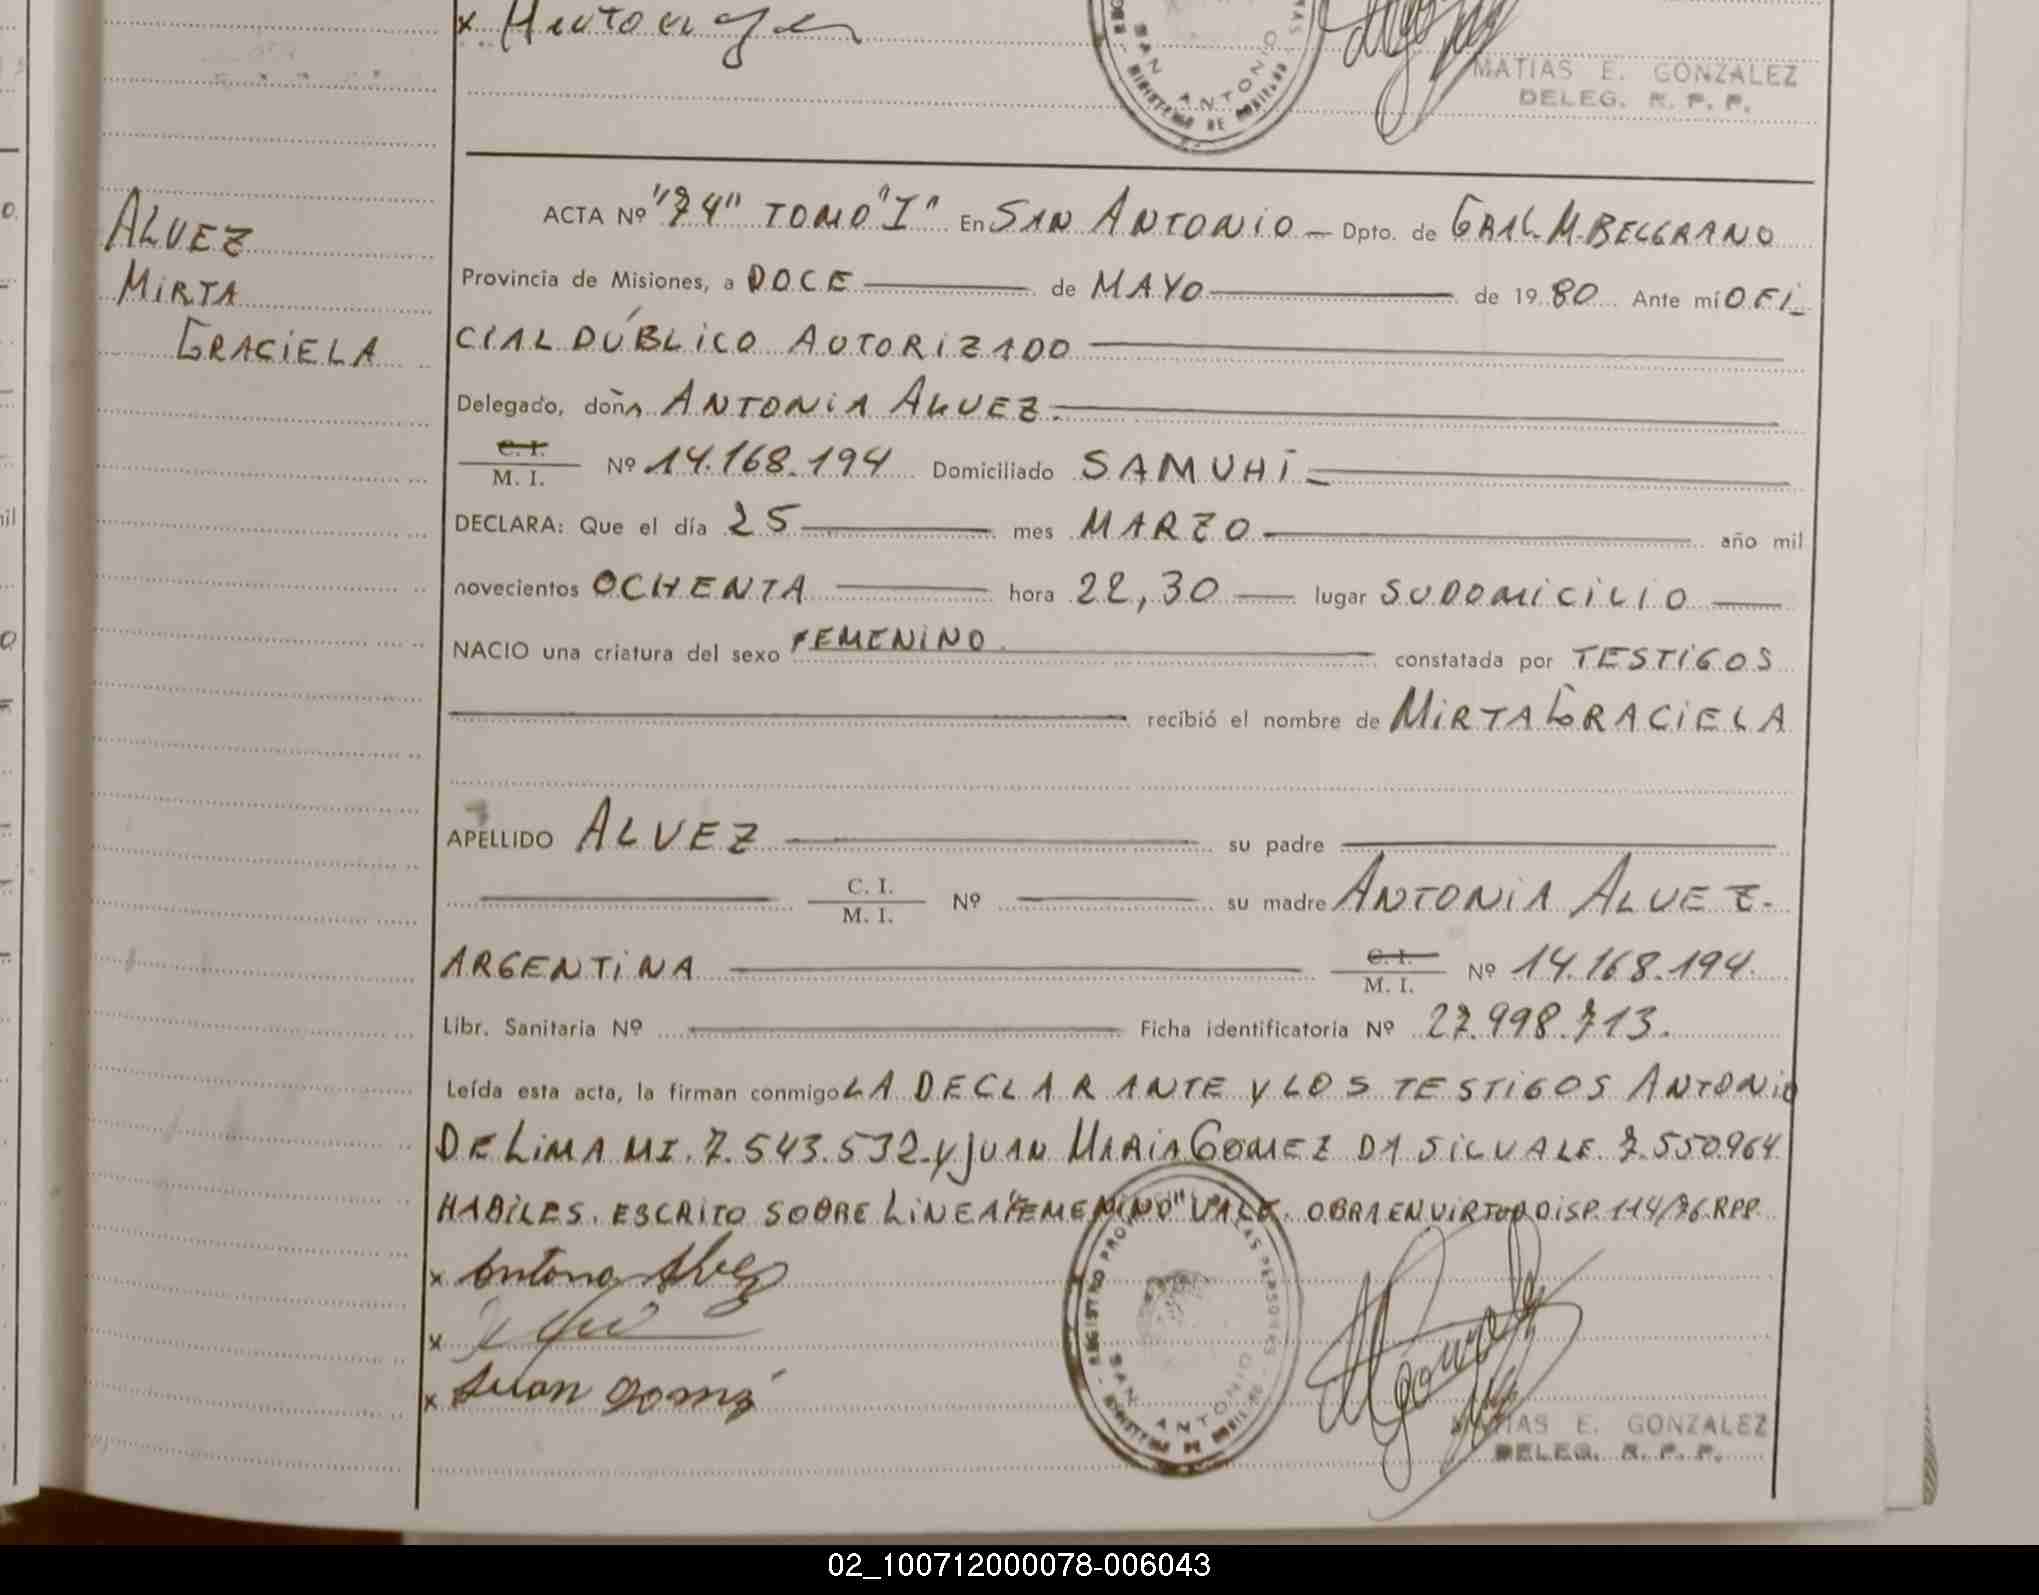 x Antonio
SAN ANTONIO
MINISTERIO DE
MATIAS E. GONZALEZ
DELEG. R. P. P.
ALVEZ
MIRTA
GRACIELA
ACTA Nº "74" TOMO "I" En SAN ANTONIO — Dpto. de GRAL. M. BELGRANO
Provincia de Misiones, a DOCE de MAYO de 1980 Ante mí OFI_
CIAL PÚBLICO AUTORIZADO
Delegado, doña ANTONIA ALVEZ.
C. I.
M. I. Nº 14.168.194 Domiciliado SAMUHI
DECLARA: Que el día 25 mes MARZO año mil
novecientos OCHENTA hora 22,30 lugar SU DOMICILIO
NACIO una criatura del sexo FEMENINO constatada por TESTIGOS
recibió el nombre de MIRTA GRACIELA
APELLIDO ALVEZ su padre
C. I.
M. I. Nº su madre ANTONIA ALVEZ.
ARGENTINA C. I.
M. I. Nº 14.168.194.
Libr. Sanitaria Nº Ficha identificatoria Nº 27.998.713.
Leída esta acta, la firman conmigo LA DECLARANTE Y LOS TESTIGOS ANTONIO
DE LIMA MI. 7.543.532. y JUAN MARIA GOMEZ DA SILVA LE. 7.550.964
HABILES. ESCRITO SOBRE LINEA "FEMENINO" VALE. OBRA EN VIRTUD DISP. 114/76. RPP.
x Antona Alvez
x
x Juan Gomez
REGISTRO PROVINCIAL DE LAS PERSONAS
SAN ANTONIO
MINISTERIO DE
MATIAS E. GONZALEZ
DELEG. R. P. P.
02_100712000078-006043